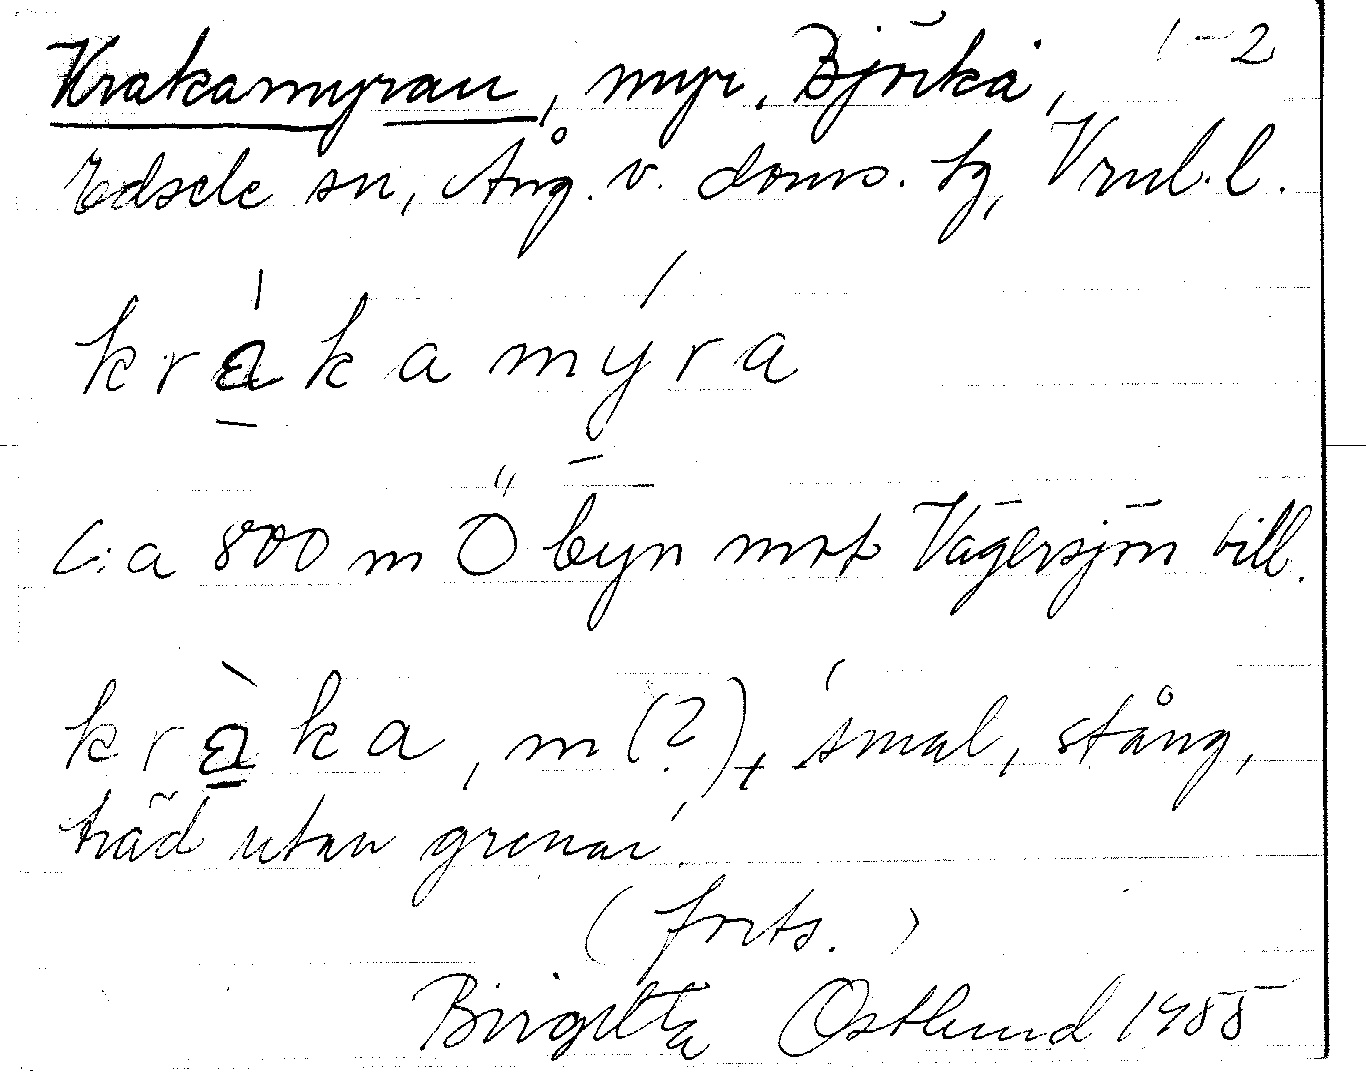 1-2
Krakamyran, myr, Björkå,
Edsele sn, Ång. v. doms. tg, Vrnl. l.
krákamýra
C:a 800 m Ö byn mot Vägersjön till.
kràka, m (?), 'smal, stång,
träd utan grenar'
(forts.)
Birgitta Östlund 1955